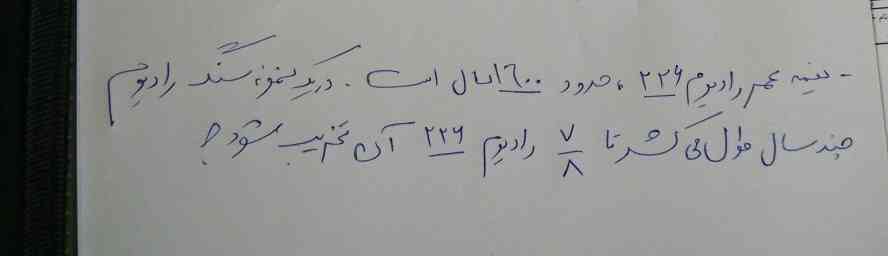 - نیمه عمر رادیوم ۲۲۶، حدود ۱۶۰۰ سال است. در یک نمونه سنگ رادیوم
چند سال طول می کشد تا ۷/۸ رادیوم ۲۲۶ آن تخریب شود؟